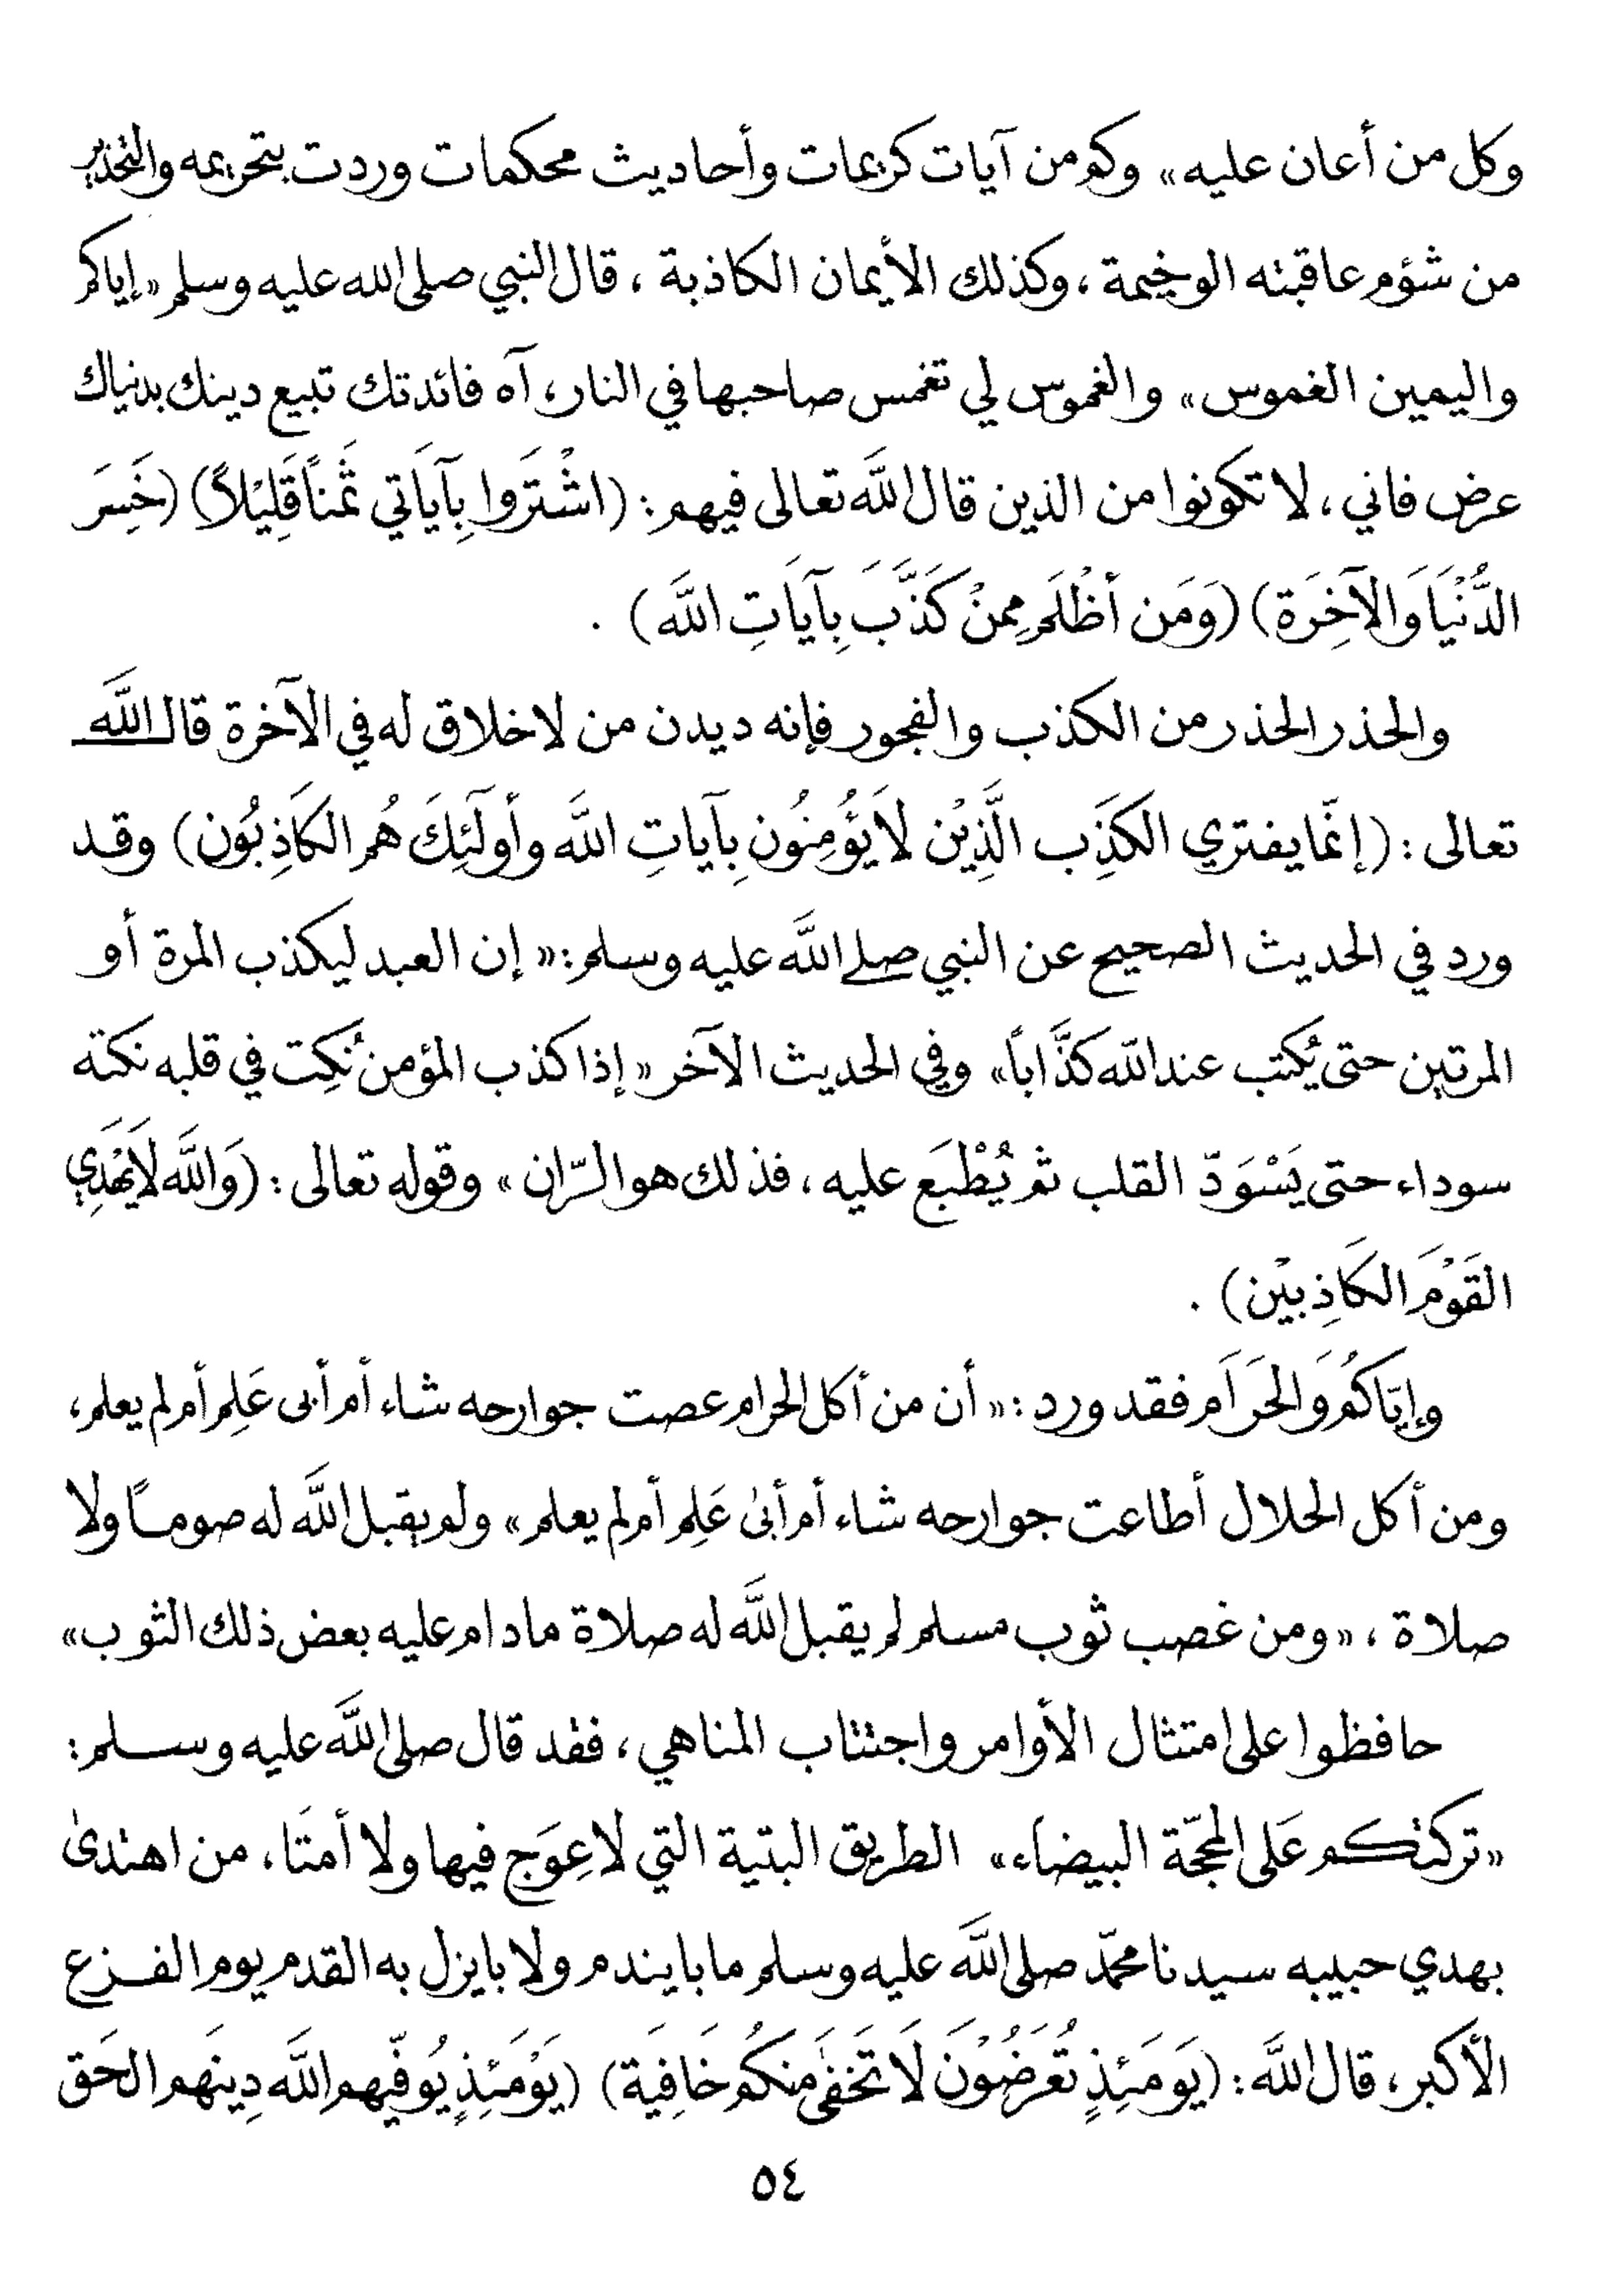 وكل من أعان عليه» وكم من آيات كريمات وأحاديث محكمات وردت بتحريمه والتحذير
من شؤم عاقبته الوخيمة، وكذلك الأيمان الكاذبة، قال النبي صلى الله عليه وسلم «إياكم
واليمين الغموس» والغموس لي تغمس صاحبها في النار، آه فائدتك تبيع دينك بدنياك
عرض فاني، لا تكونوا من الذين قال الله تعالى فيهم: (اشْتَروا بِآيَاتي ثَمناً قَلِيْلاً) (خَسِرَ
الدُّنْيَا وَالآخِرَة) (وَمَن أظْلَم مِمنْ كَذَّبَ بِآيَاتِ اللَّه) .
والحذر الحذر من الكذب والفجور فإنه ديدن من لا خلاق له في الآخرة قال اللَّه
تعالى: (إنّما يفتري الكَذِب الَّذِيْن لاَ يُؤْمِنُون بِآيَاتِ اللَّه وأولَئِكَ هُم الكَاذِبُون) وقد
ورد في الحديث الصحيح عن النبي صلى اللَّه عليه وسلم: «إن العبد ليكذب المرة أو
المرتين حتى يُكتب عند الله كذَّاباً» وفي الحديث الآخر «إذا كذب المؤمن نُكِت في قلبه نكتة
سوداء حتى يَسْوَدّ القلب ثم يُطْبَع عليه، فذلك هو الرّان» وقوله تعالى: (وَاللَّه لاَ يَهْدِي
القَوْمَ الكَاذِبيْن) .
وإيّاكُم وَالحَرَام فقد ورد: «أن من أكل الحرام عصت جوارحه شاء أم أبى عَلِم أم لم يعلم،
ومن أكل الحلال أطاعت جوارحه شاء أم أبىٰ عَلِم أم لم يعلم» ولم يقبل اللَّه له صوماً ولا
صلاة، «ومن غصب ثوب مسلم لم يقبل اللَّه له صلاة مادام عليه بعض ذلك الثوب»
حافظوا على امتثال الأوامر واجتناب المناهي، فقد قال صلى اللَّه عليه وسلم:
«تركتكم عَلى المحجّة البيضاء» الطريق البتية التي لا عِوَج فيها ولا أمتَا، من اهتدىٰ
بهدي حبيبه سيدنا محمّد صلى اللَّه عليه وسلم ما بايندم ولا بايزل به القدم يوم الفزع
الأكبر، قال اللَّه: (يَومَئِذٍ تُعرَضُوْنَ لاَ تَخفىٰ مِنكُم خَافِيَة) (يَوْمَئِذٍ يُوفّيهم اللَّه دِينَهم الحَق
٥٤